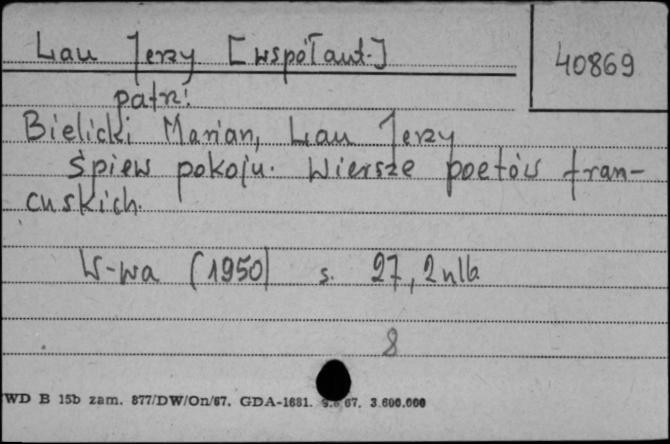 Lau Jerzy [współaut.]
40869
patrz:
Bielicki Marian, Lau Jerzy
Śpiew pokoju. Wiersze poetów fran-
cuskich.
W-wa (1950) s. 27, 2 nlb
8
WD B 15b zam. 877/DW/On/67. GDA-1681. 67. 3.600.000